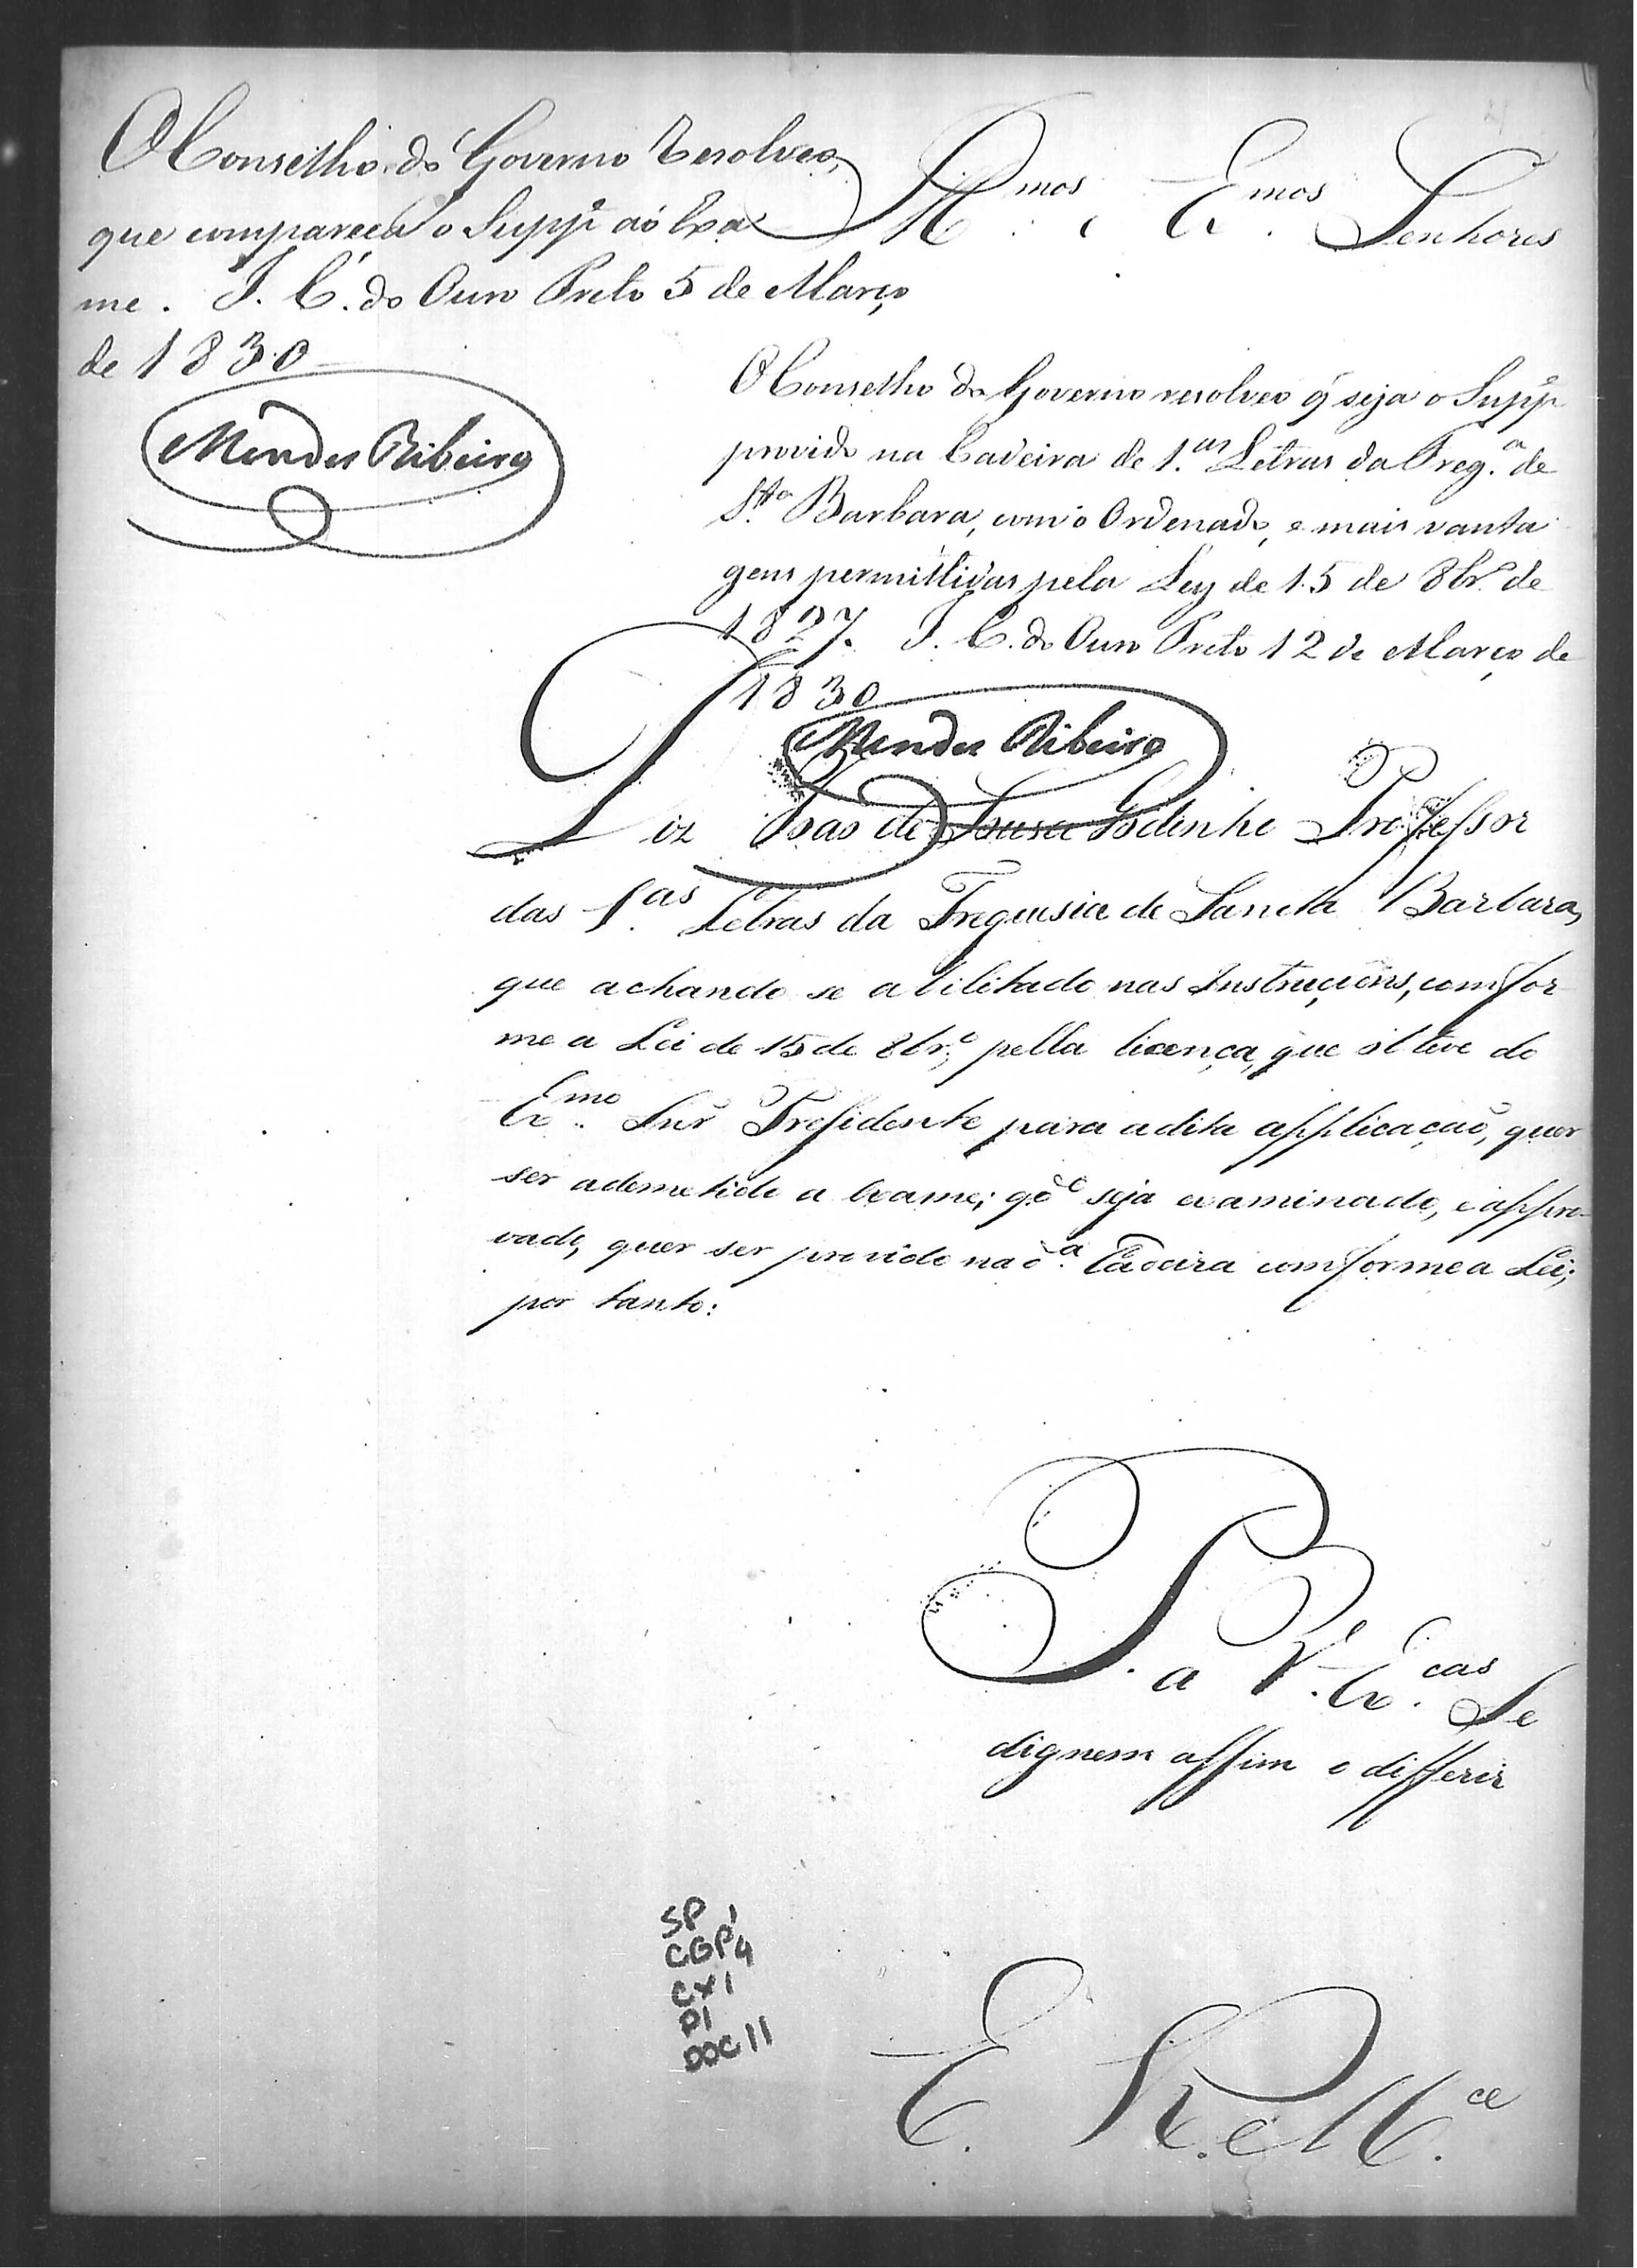 O Conselho do Governo Resolveo,
que compareça o Supp.e aó Exa
me. I. C. do Ouro Preto 5 de Março
de 1830
Mendes Ribeiro
Ill.mos e Ex.mos Senhores
O Conselho do Governo resolveo q̃ seja o Supp.e
provido na Cadeira de 1.as Letras da Freg.a de
S.ta Barbara, com o Ordenado, e mais vanta
gens permittidas pela Ley de 15 de 8br.o de
1827. I. C. do Ouro Preto 12 de Março de
1830
Mendes Ribeiro
Diz João de Sousa Godinho Professor
das 1.as Letras da Freguisia de Sancta Barbara,
que achando se abilitado nas Instruçoens, comfor
me a Lei de 15 de 8br.o, pella licença, que obteve do
Ex.mo Snr Presidente para a dita applicação, quer
ser ademetido a exame; q̃do seja examinado, e appro-
vado, quer ser provido na d.a Cadeira comforme a Lei;
por tanto:
P. a V. Ex.cas Se
dignem assim o differir
SP 1
CGP 4
CX 1
P1
DOC 11
E. R. e M.ce